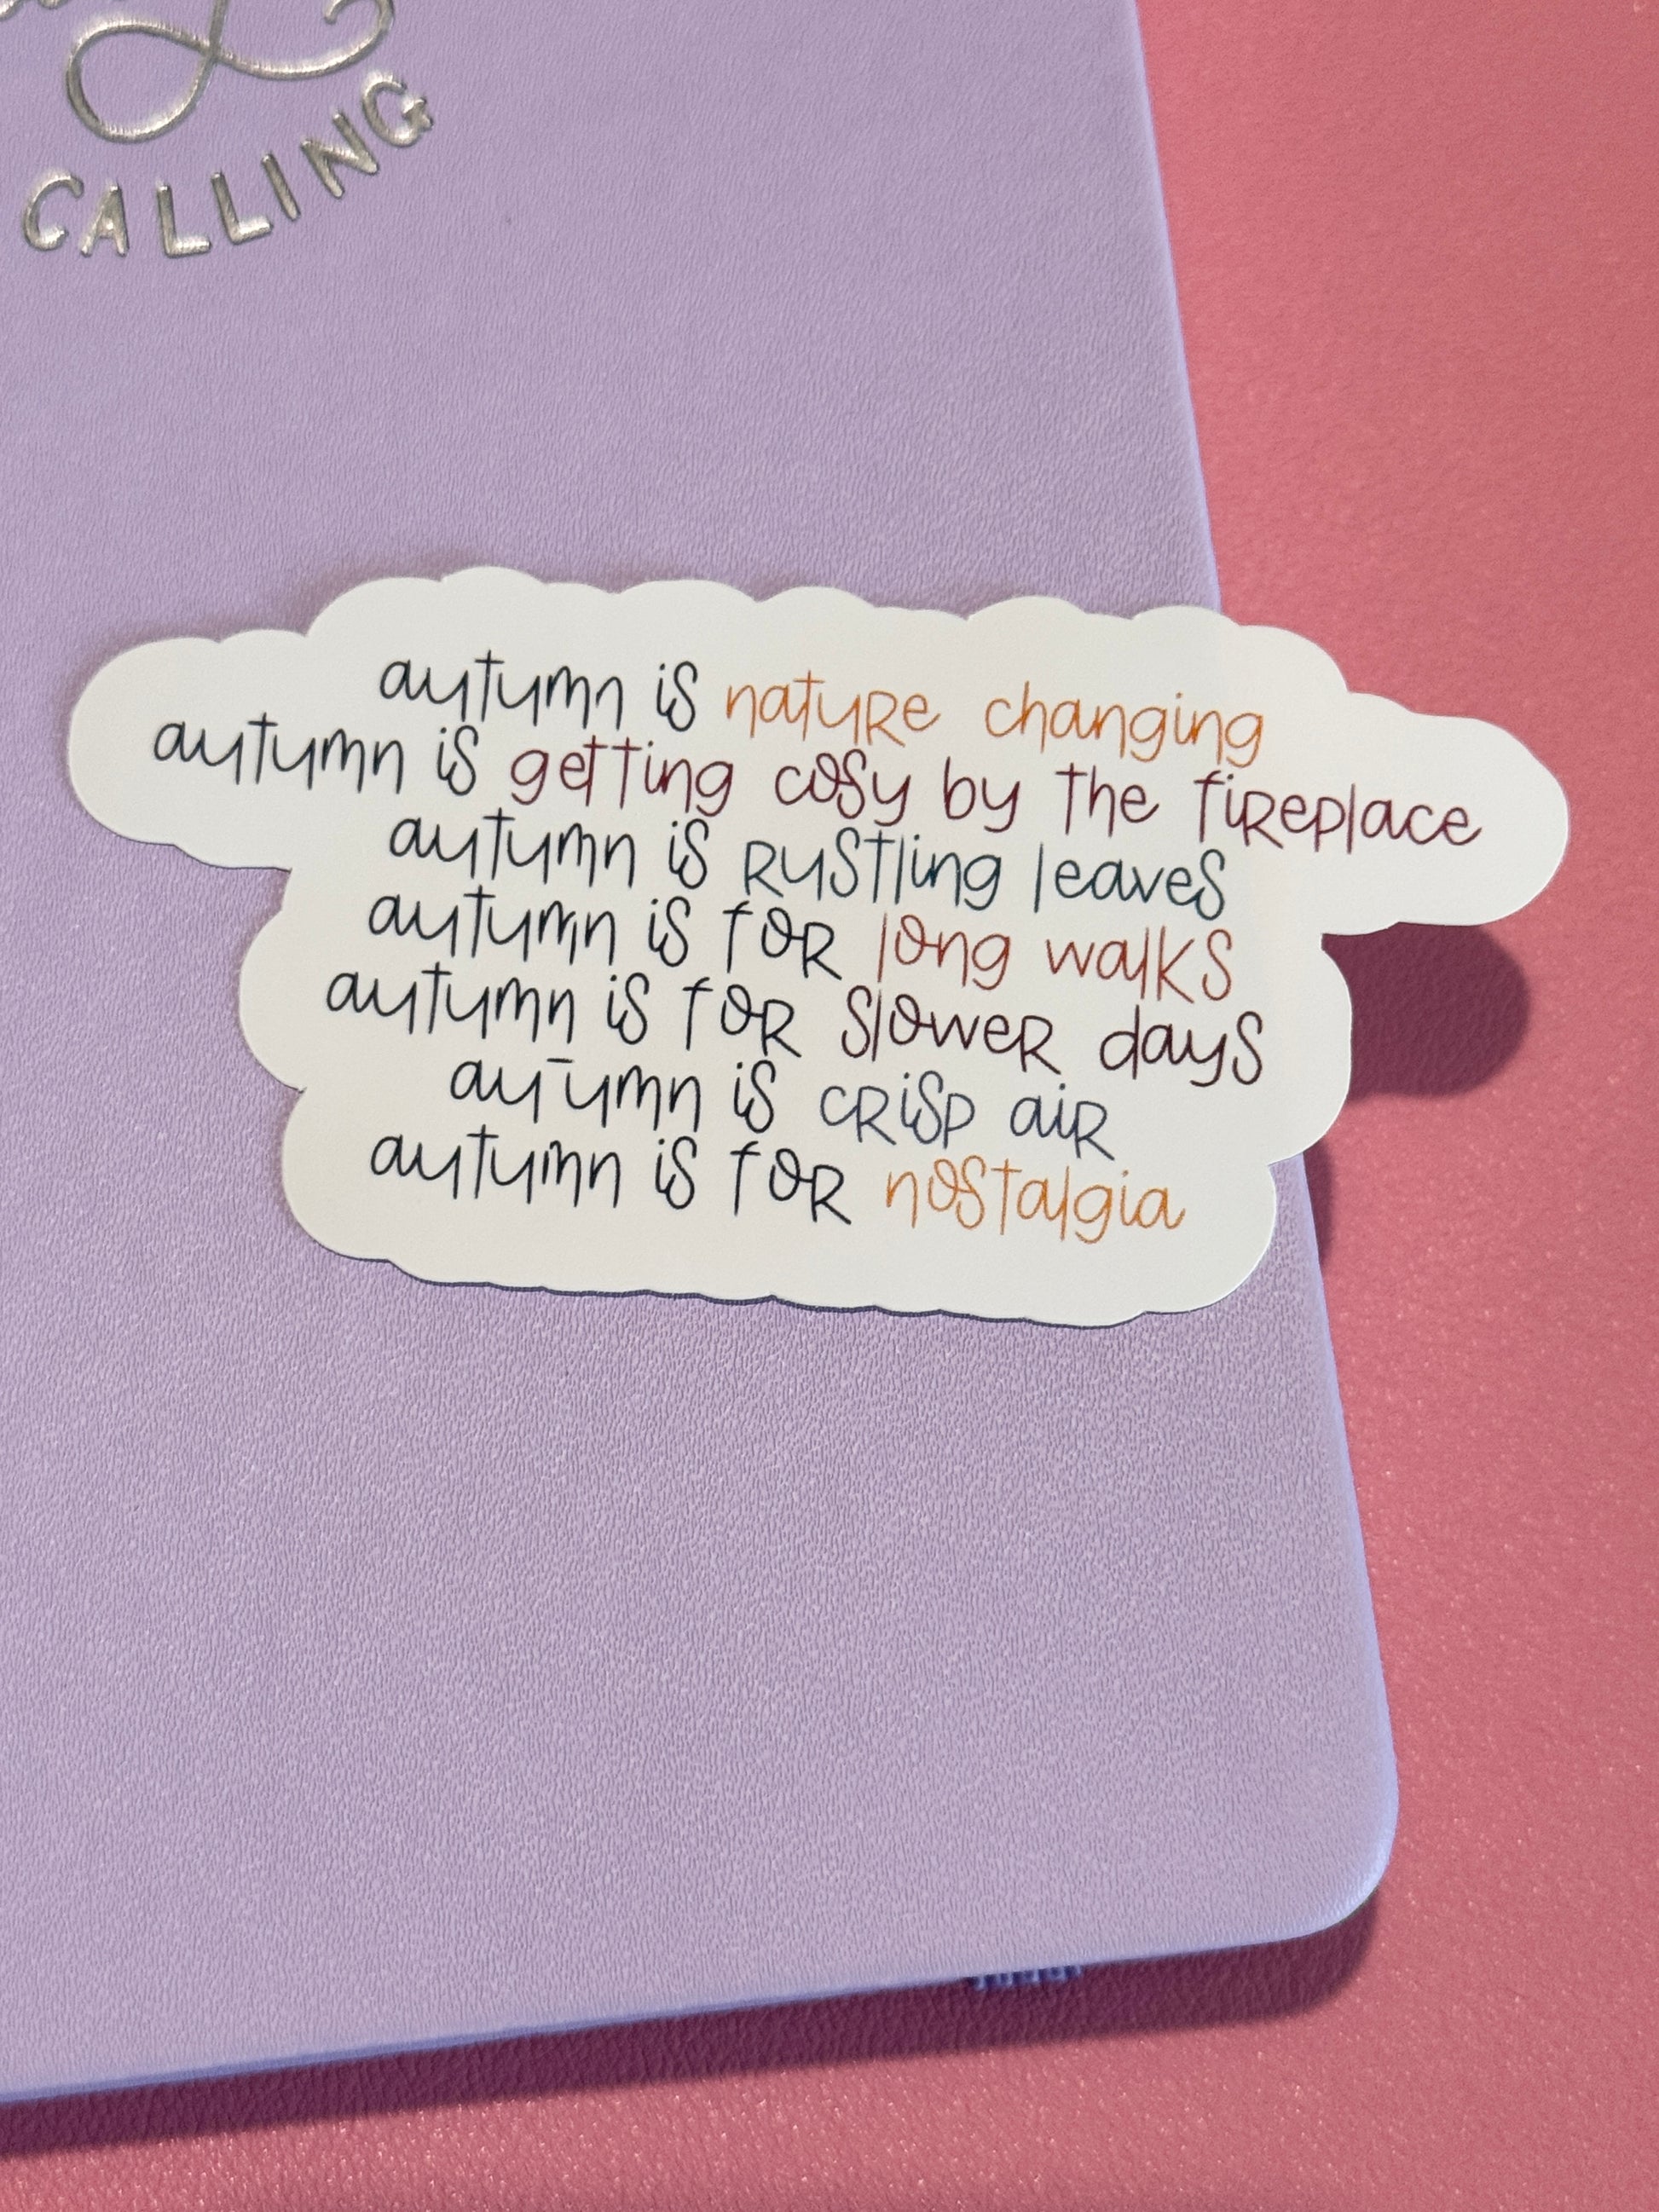 CALLING
autumn is natuRe changing
autumn is getting cosy by the fiReplace
autumn is Rustling leaves
autumn is foR long walks
autumn is foR sloweR days
autumn is cRisp aiR
autumn is foR nostalgia